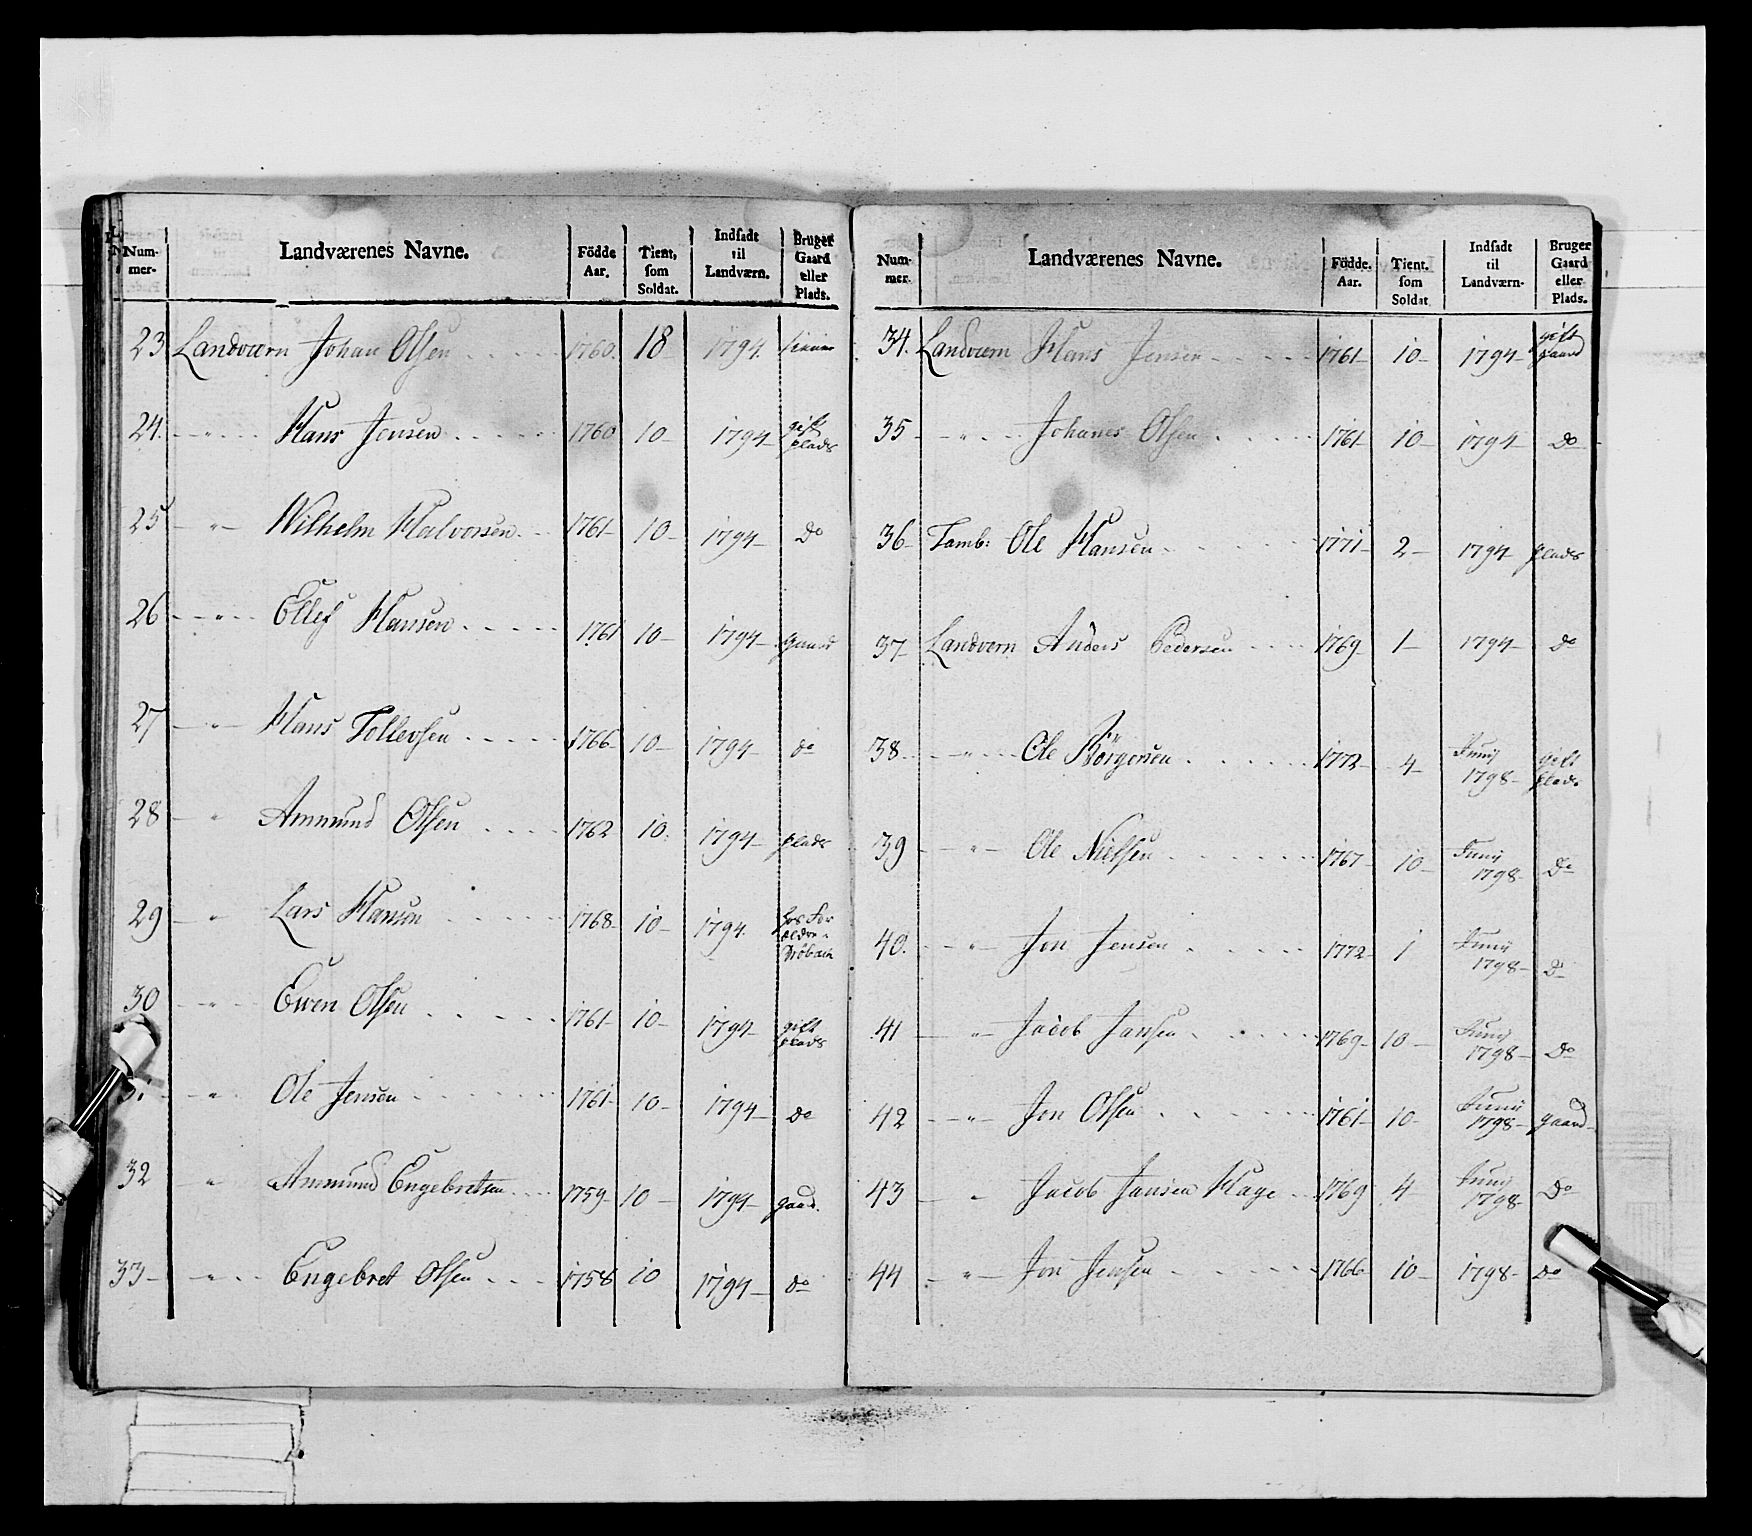 Num-
mer-
Landværenes Navne.
Födde
Aar.
Tient,
som
Soldat.
Indsadt
til
Landværn.
Bruger
Gaard
eller
Plads.
23 Landværn Johan Olsen 1760. 18 1794.
24. " Hans Jensen 1760 10 1794 gift plads
25 " Wilhelm Halvorsen 1761 10 1794 do
26 " Ellef Hansen 1761 10 1794 gaard
27 " Hans Tollevsen 1766 10 1794 do
28 " Ammund Olsen 1762 10. 1794 plads
29 " Lars Hansen 1768 10 1794.
30 " Ewen Olsen 1761 10 1794 gift plads
31 " Ole Jensen 1761 10 1794 do
32 " Ammund Engebretsen 1759 10 1794 gaad.
33 " Engebret Olsen 1758 10 1794 do
Num-
mer.
Landværenes Navne.
Födde.
Aar.
Tient.
som
Soldat
Indsadt
til
Landværn.
Bruger
Gaard
eller
Plads.
34. Landværn Hans Jensen 1761 10 1794 gift gaard
35 " Johanes Olsen 1761 10 1794 do
36 Tamb: Ole Hansen 1771 2 1794 plads
37 Landvern Anders Pedersen 1769 1 1794 do
38 " Ole Börgersen 1772 4 Junij 1798 gift plads
39 " Ole Nielsen 1767 10 Junij 1798 Do
40. " Jon Jensen 1772 1 Junij 1798 D
41 " Jacob Jansen 1769 10 Junij 1798 Do
42 " Jon Olsen 1761 10 Junij 1798 gaard
43 " Jacob Jansen Hage 1769 4 Junij 1798 Do
44 " Jon Jensen 1766 10 1798 Do